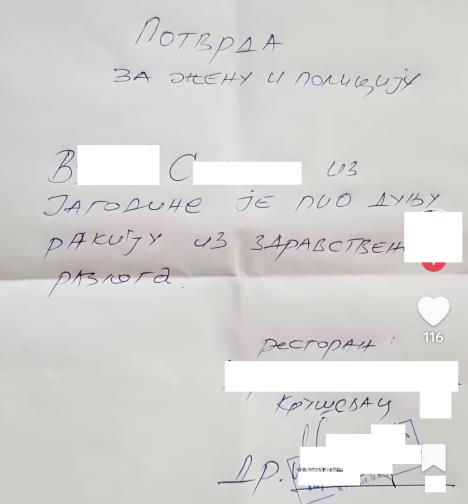 Потврда
за жену и полицију
В С из
Јагодине је пио дуњу
ракију из здравствен
разлога.
ресторан:
Крушевац
Др.
116